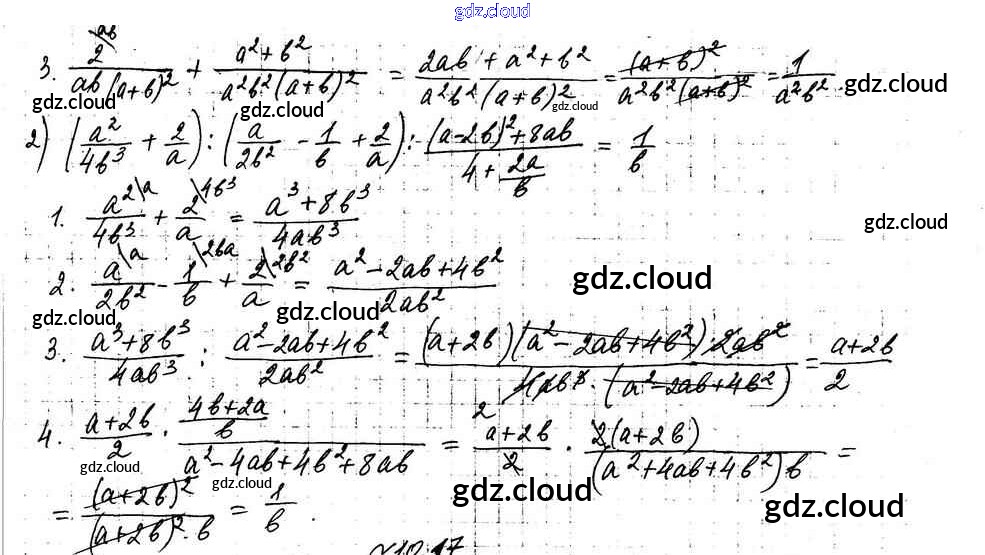 gdz.cloud
3. 2\ab/(ab(a+b)²) + (a²+b²)/(a²b²(a+b)²) = (2ab+a²+b²)/(a²b²(a+b)²) = (a+b)²/(a²b²(a+b)²) = 1/(a²b²).
gdz.cloud gdz.cloud gdz.cloud gdz.cloud gdz.cloud
2) (a²/(4b³) + 2/a) : (a/(2b²) - 1/b + 2/a) : ((a-2b)²+8ab)/(4+2a/b) = 1/b
1. a²\a/(4b³) + 2\4b³/a = (a³+8b³)/(4ab³)
gdz.cloud
2. a\a/(2b²) - 1\2ba/b + 2\2b²/a = (a²-2ab+4b²)/(2ab²)
gdz.cloud gdz.cloud
3. (a³+8b³)/(4ab³) : (a²-2ab+4b²)/(2ab²) = ((a+2b)(a²-2ab+4b²)·2ab²)/(4ab³·(a²-2ab+4b²)) = (a+2b)/2
2
4. (a+2b)/2 · ((4b+2a)/b)/(a²-4ab+4b²+8ab) = (a+2b)/2 · 2(a+2b)/((a²+4ab+4b²)b) =
gdz.cloud gdz.cloud gdz.cloud gdz.cloud
= (a+2b)²/((a+2b)²·b) = 1/b.
№10.17